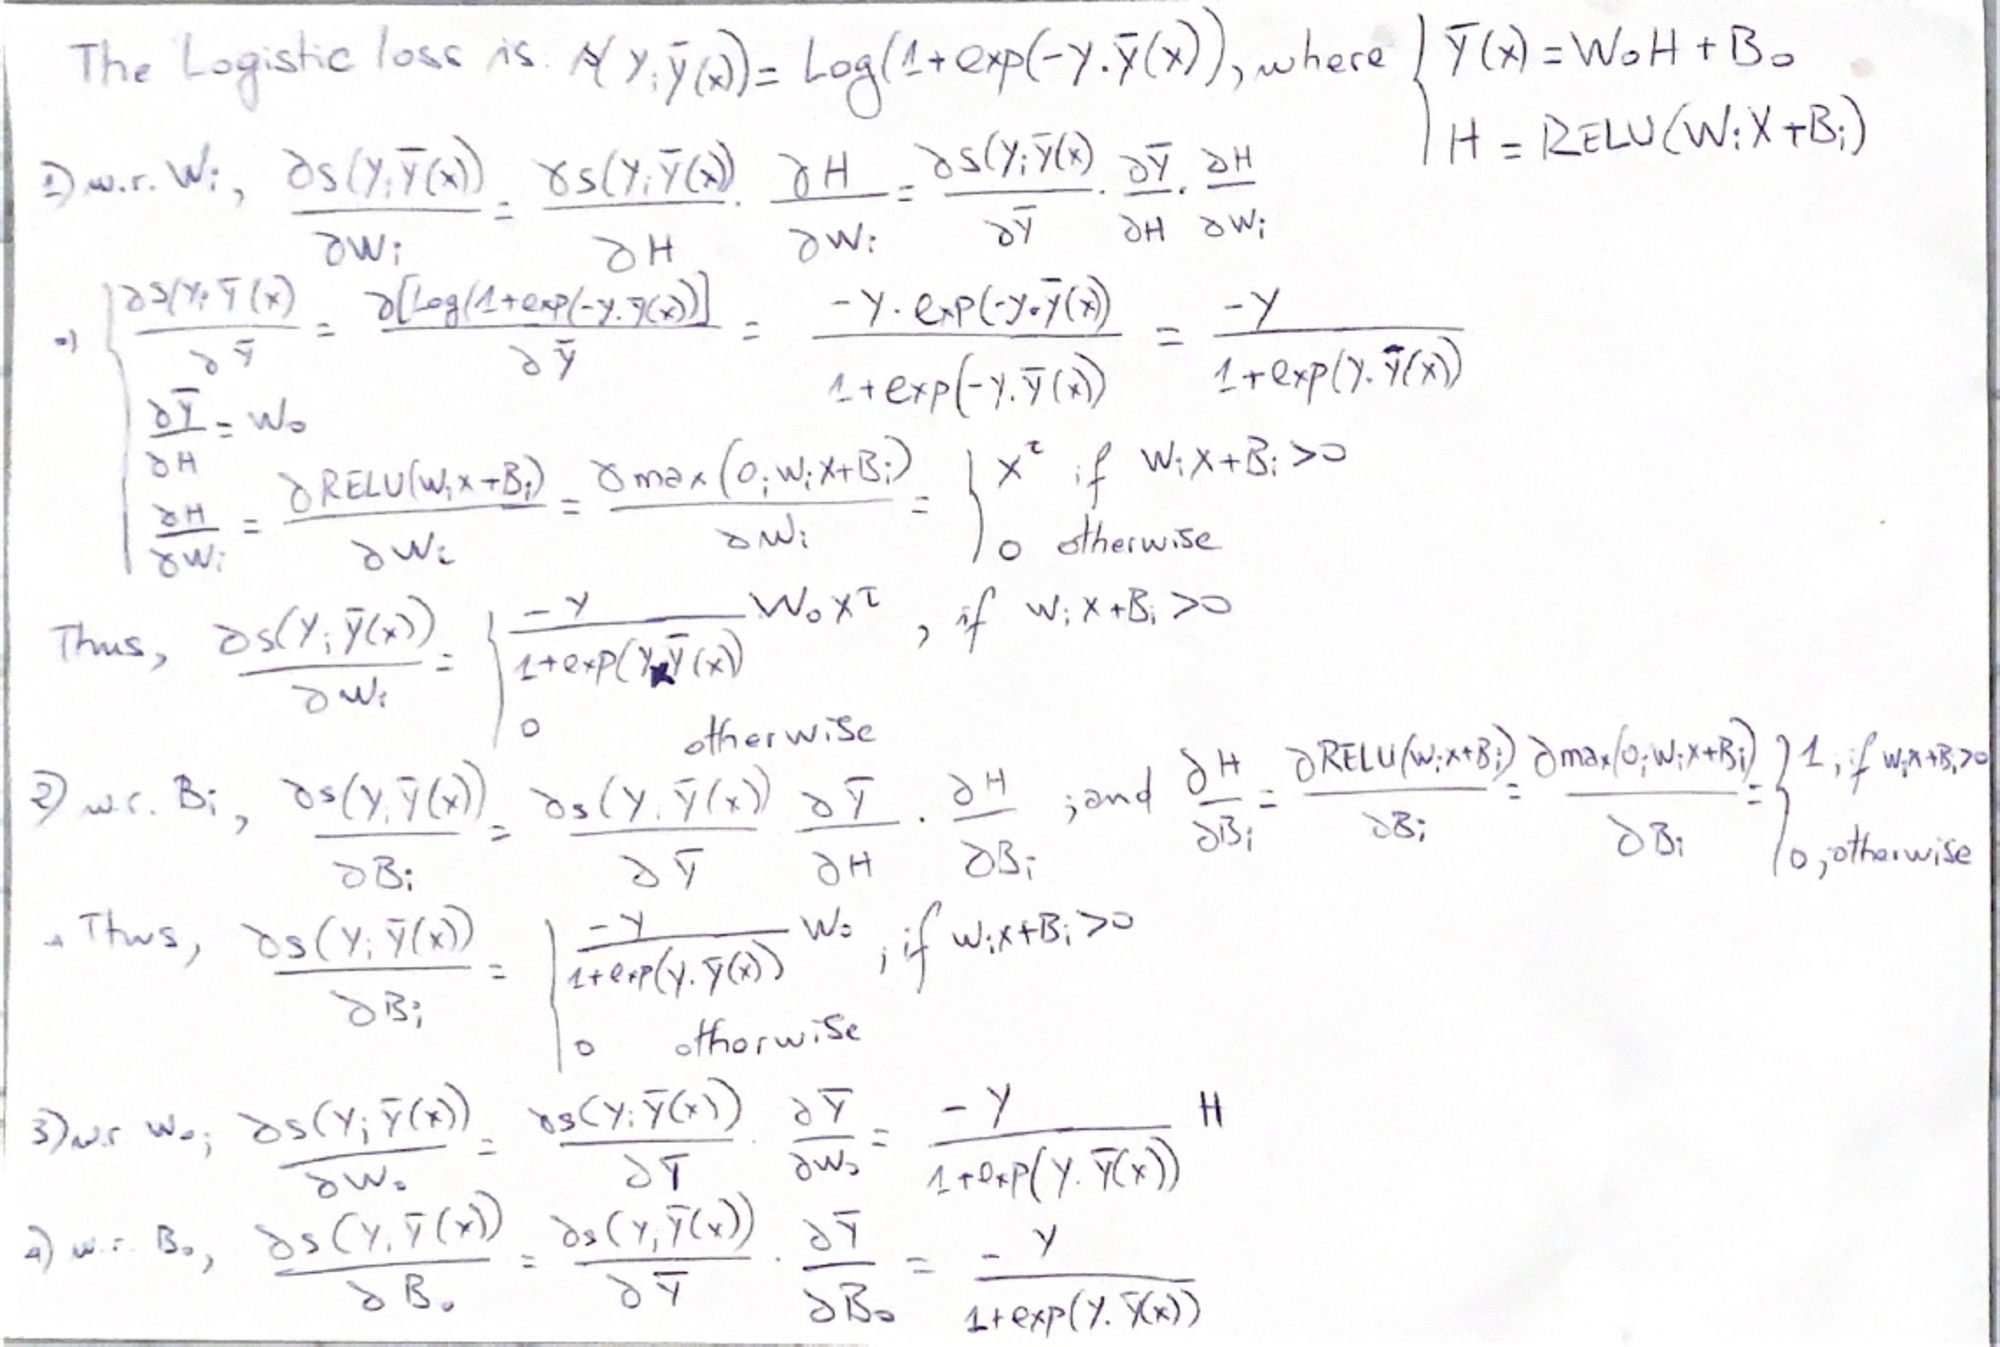 The Logistic loss is: s(Y; Ȳ(x)) = Log(1+exp(-Y.Ȳ(x))), where { Ȳ(x) = WoH + Bo
H = RELU(WiX+Bi)
1) w.r. Wi, ∂s(Y;Ȳ(x))/∂Wi = ∂s(Y;Ȳ(x))/∂H . ∂H/∂Wi = ∂s(Y;Ȳ(x)/∂Ȳ . ∂Ȳ/∂H . ∂H/∂Wi
{ ∂s(Y;Ȳ(x)/∂Ȳ = ∂[Log(1+exp(-y.ȳ(x))]/∂Ȳ = -Y.exp(-y.ȳ(x))/1+exp(-y.ȳ(x)) = -Y/1+exp(y.ȳ(x))
∂Ȳ/∂H = Wo
∂H/∂Wi = ∂RELU(Wix+Bi)/∂Wi = ∂max(0; WiX+Bi)/∂Wi = { X^T if WiX+Bi >0
0 otherwise
Thus, ∂s(Y;Ȳ(x))/∂Wi = { -Y/1+exp(Y.Ȳ(x)) WoX^T, if WiX+Bi >0
0 otherwise
2) w.r. Bi, ∂s(Y;Ȳ(x))/∂Bi = ∂s(Y;Ȳ(x))/∂Ȳ ∂Ȳ/∂H . ∂H/∂Bi ; and ∂H/∂Bi = ∂RELU(Wix+Bi)/∂Bi = ∂max(0; Wix+Bi)/∂Bi = { 1, if Wix+Bi>0
0, otherwise
Thus, ∂s(Y;Ȳ(x))/∂Bi = { -Y/1+exp(y.ȳ(x)) Wo, if Wix+Bi >0
0 otherwise
3) w.r Wo; ∂s(Y;Ȳ(x))/∂Wo = ∂s(Y;Ȳ(x))/∂Ȳ . ∂Ȳ/∂Wo = -Y/1+exp(Y.Ȳ(x)) H
4) w.r. Bo, ∂s(Y;Ȳ(x))/∂Bo = ∂s(Y;Ȳ(x))/∂Ȳ . ∂Ȳ/∂Bo = -Y/1+exp(Y.Ȳ(x))